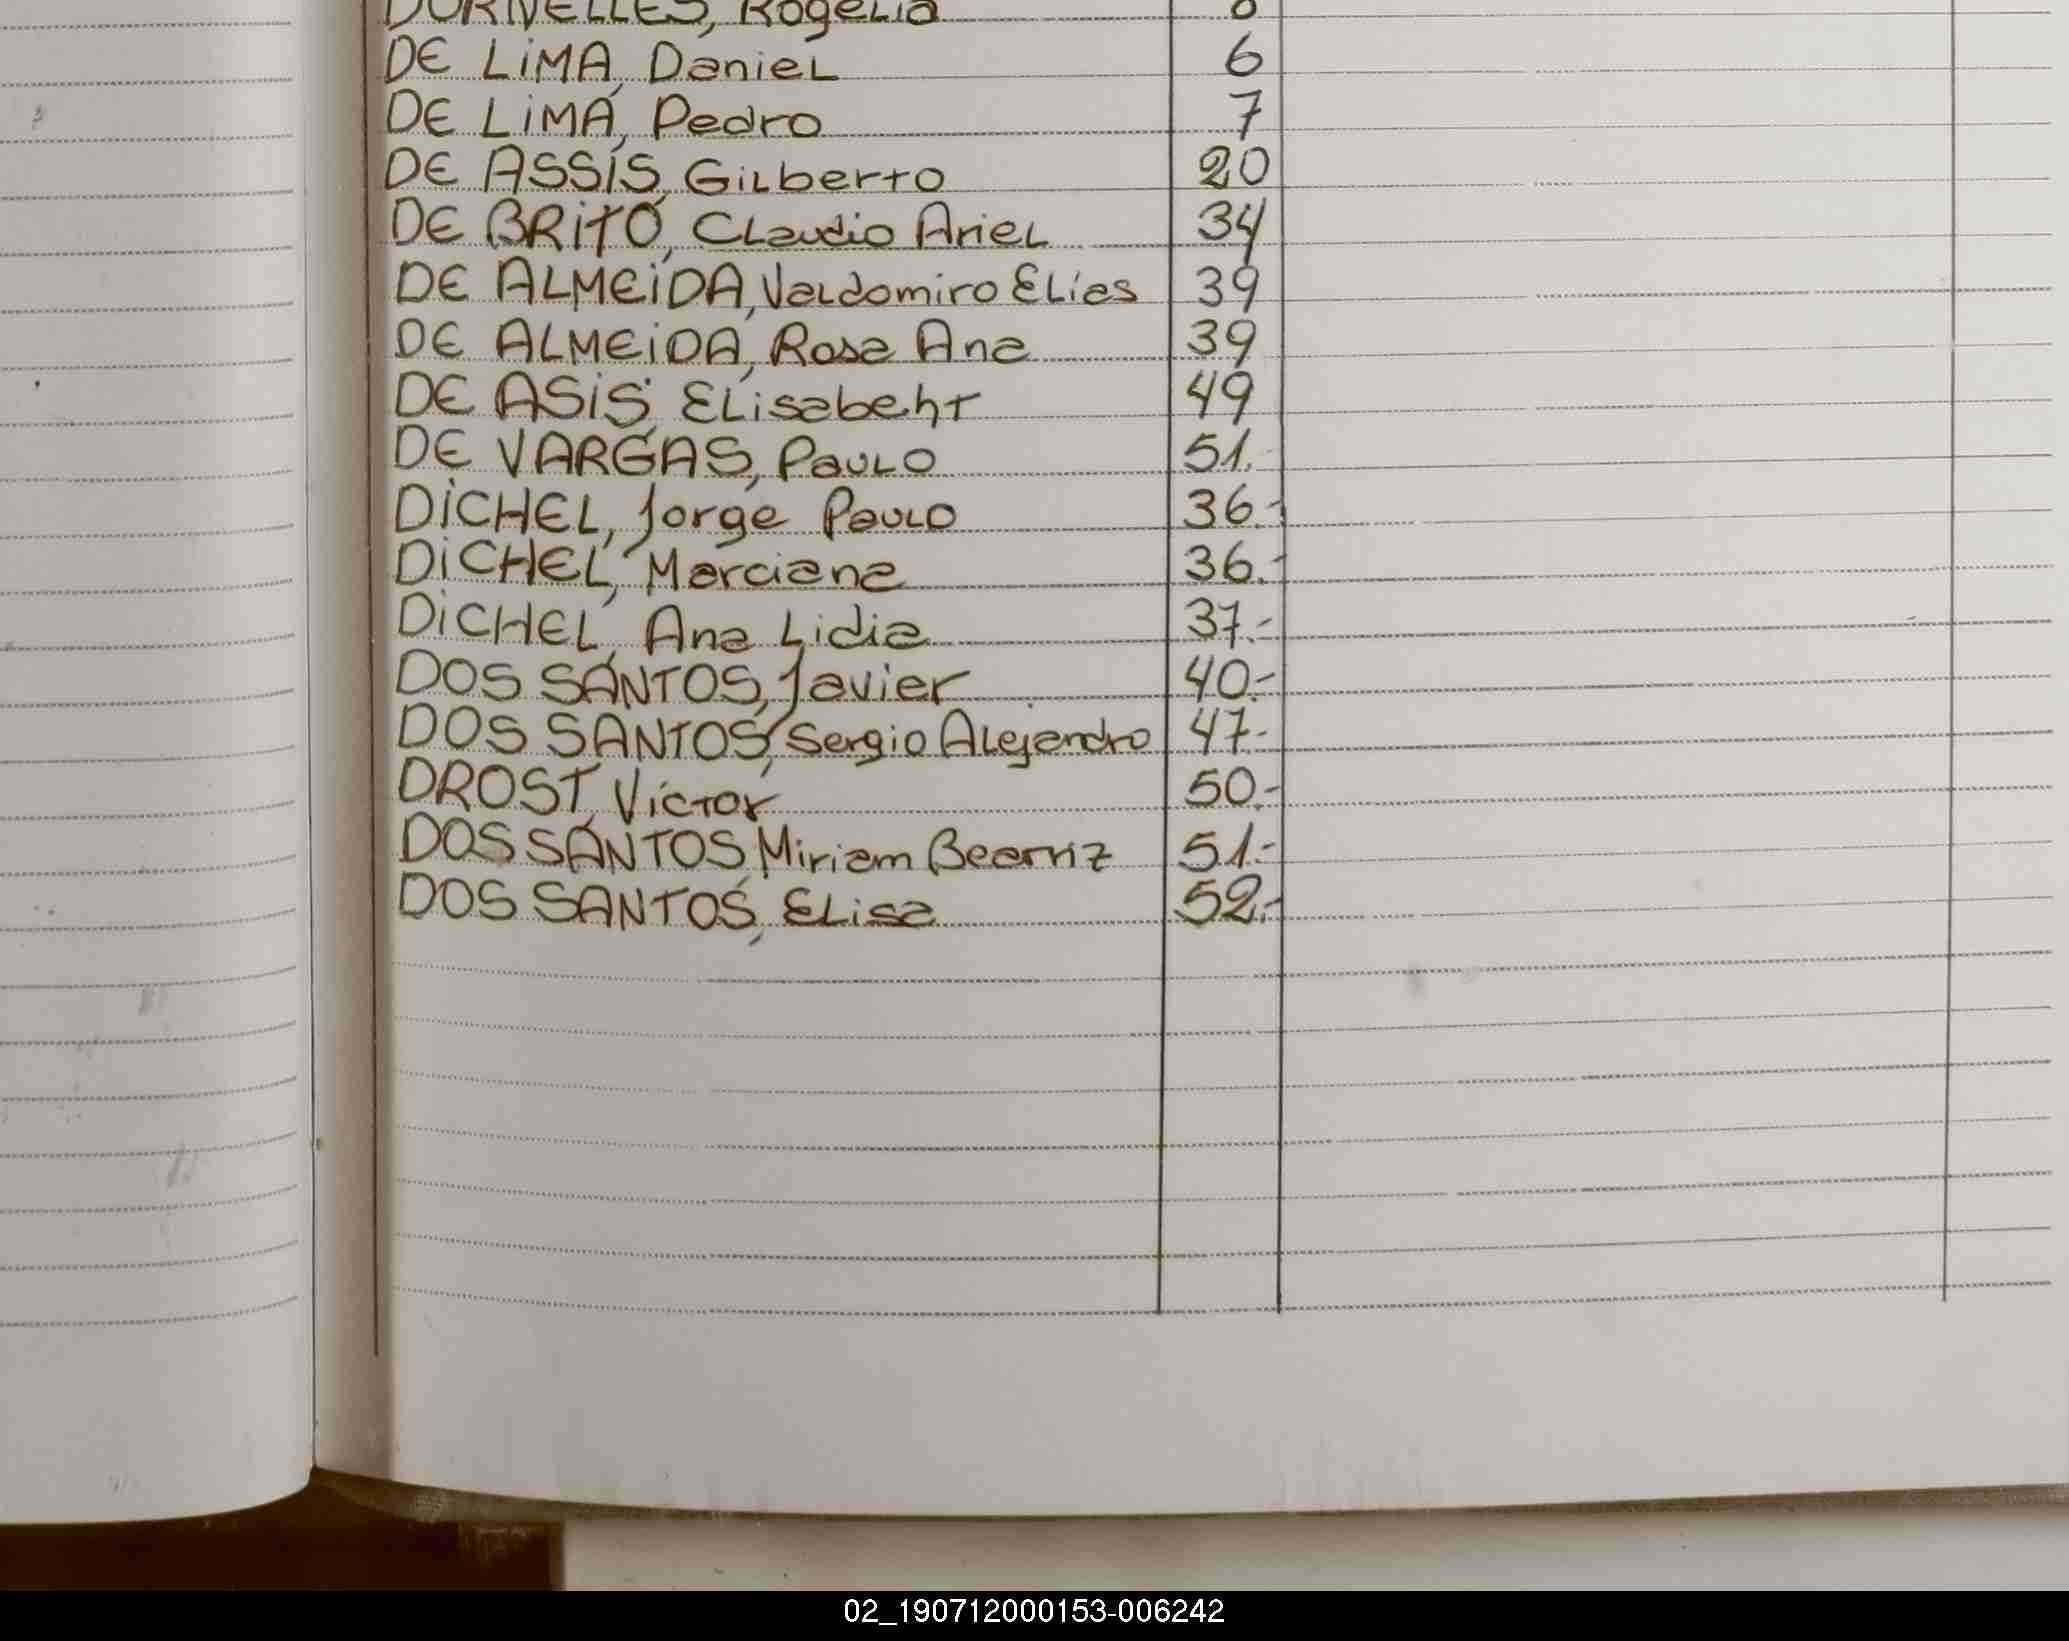 DORNELLES, Rogelia
DE LiMA, Daniel 6
DE LiMA, Pedro 7
DE ASSiS, Gilberto 20
DE BRiTO, Claudio Ariel 34
DE ALMEiDA, Valdomiro Elias 39
DE ALMEiDA, Rosa Ana 39
DE ASiS Elisabeht 49
DE VARGAS, Paulo 51.
DiCHEL, Jorge Paulo 36.-
DiCHEL, Marciana 36.-
DiCHEL, Ana Lidia 37.-
DOS SANTOS, Javier 40.-
DOS SANTOS, Sergio Alejandro 47.-
DROST, Víctor 50.-
DOS SANTOS, Miriam Beatriz 51.-
DOS SANTOS, Elisa 52.-
02_190712000153-006242